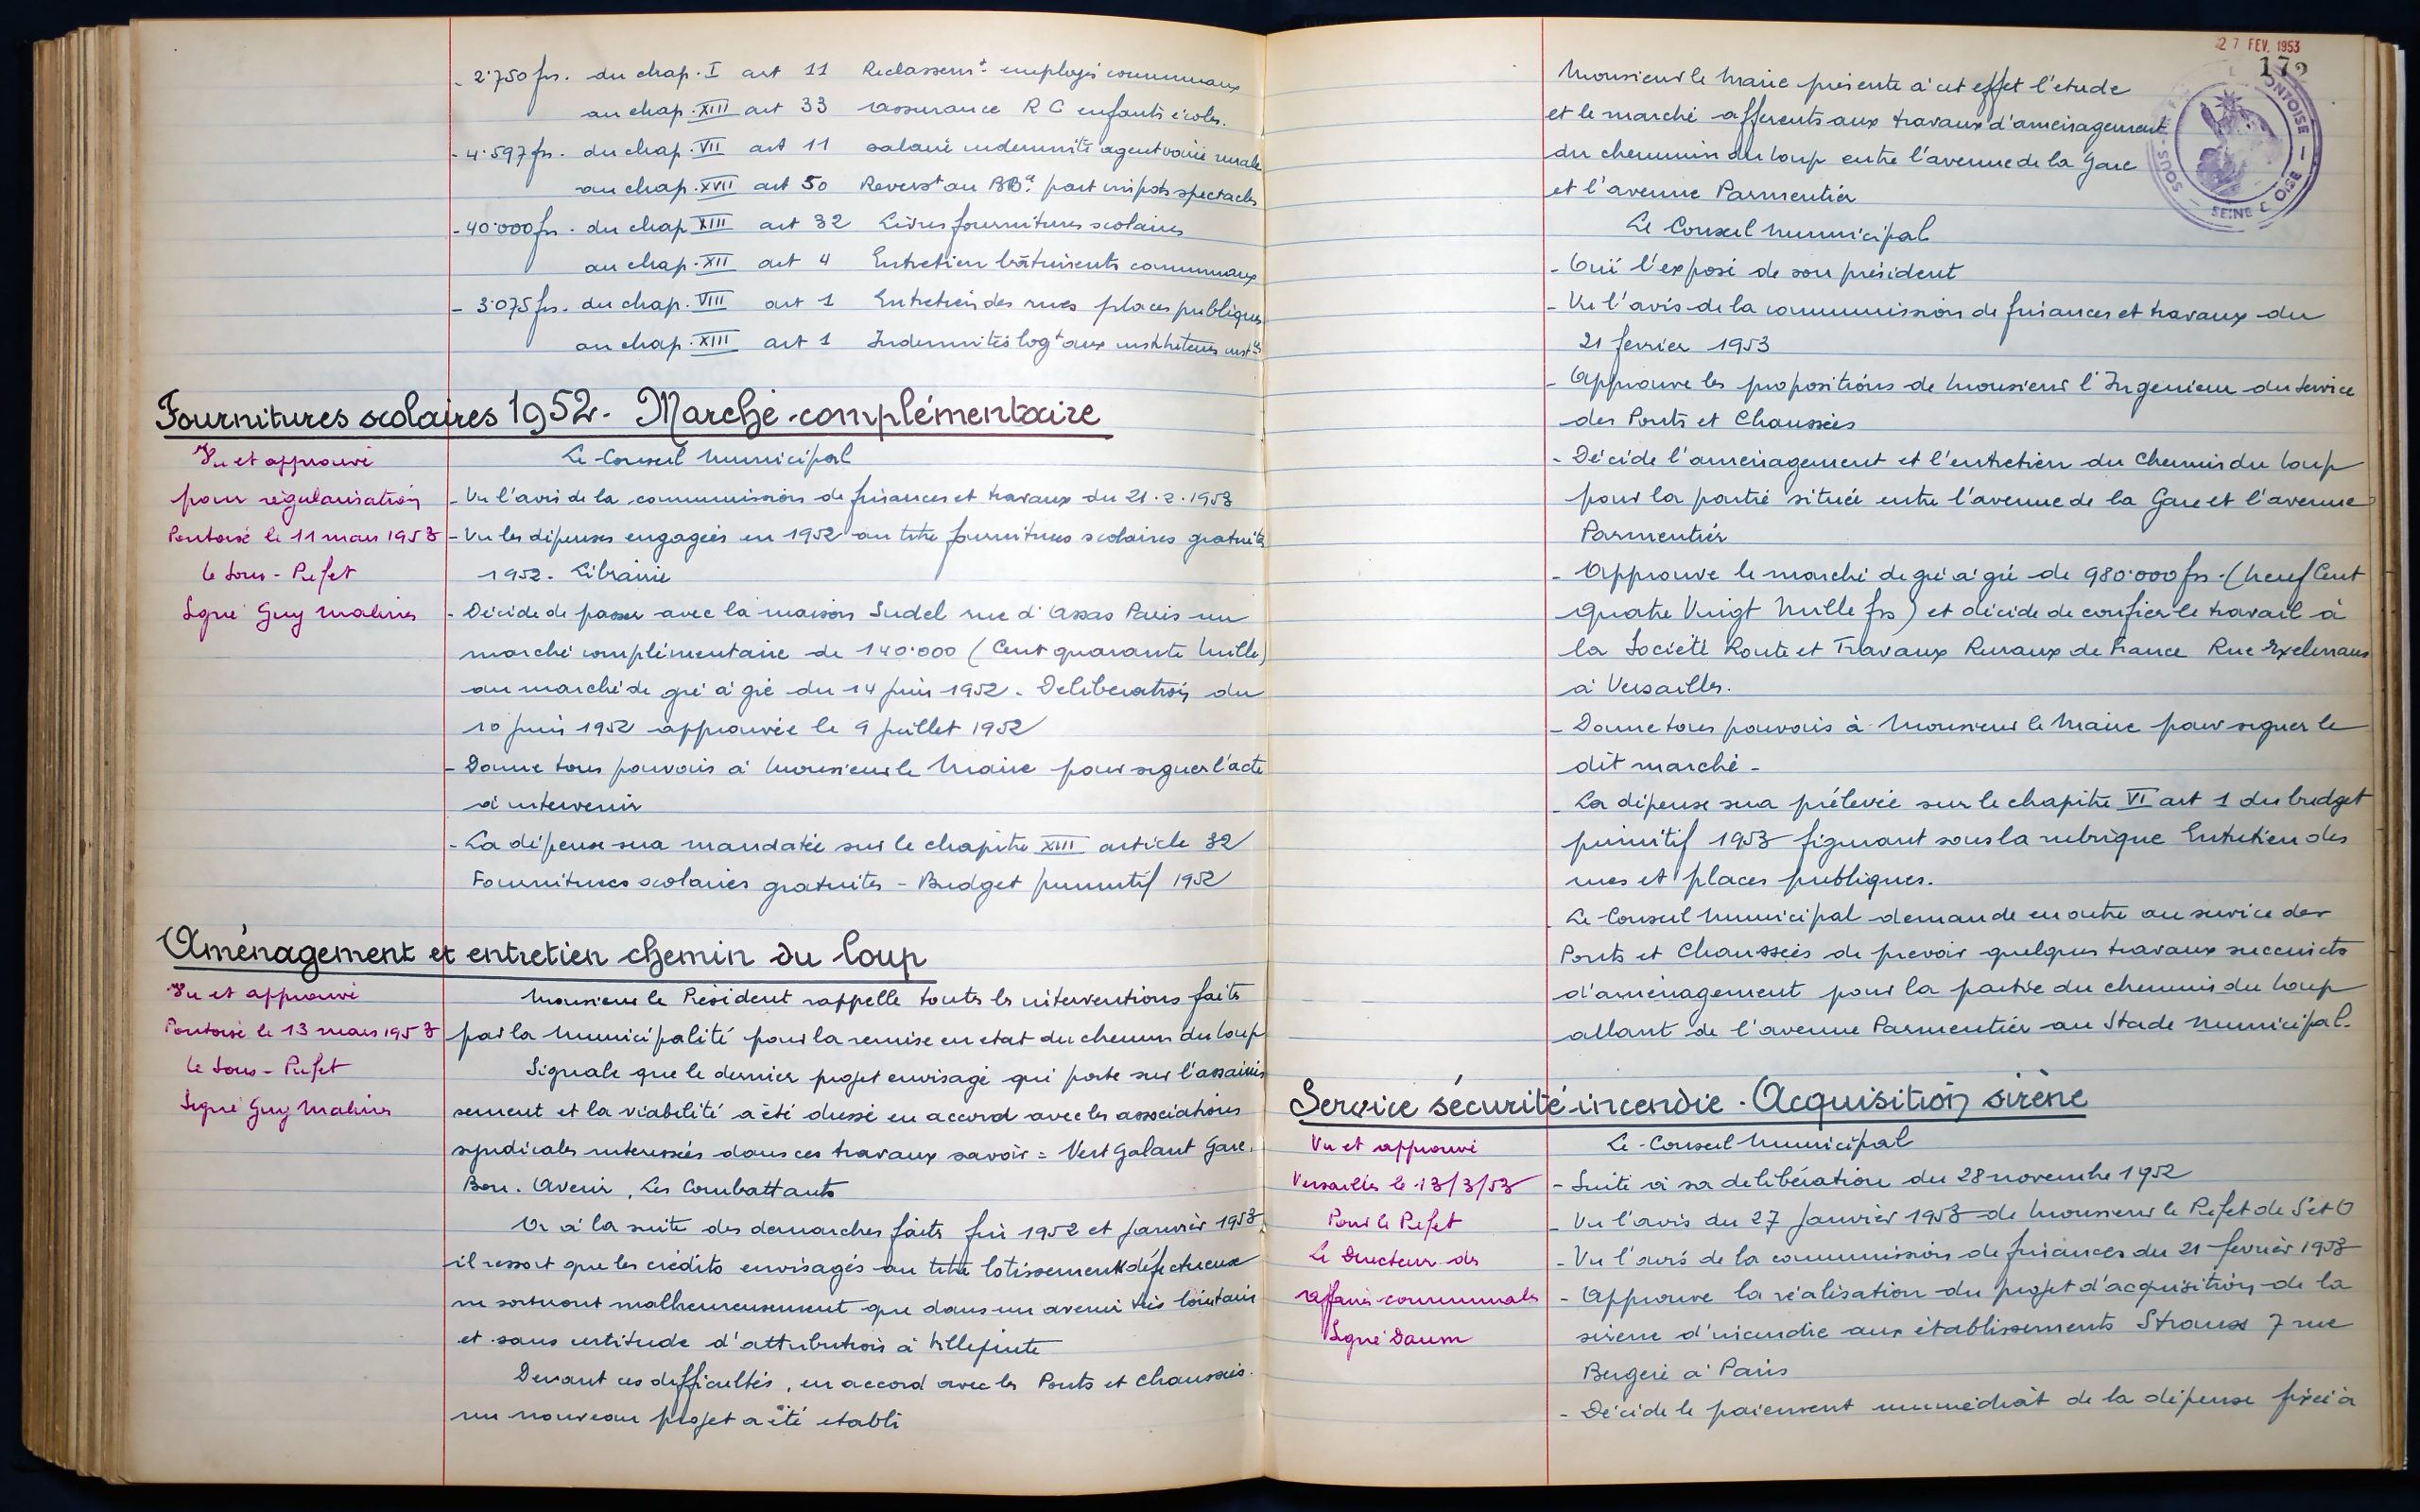 - 2.750 frs. du chap. I art 11 Reclassemt employés communaux
au chap. XIII art 33 assurance R C enfants écoles.
- 4.597 frs. du chap. VII art 11 salaire indemnité agent voirie rurale
au chap. XVII art 50 Reverst au BBce part impots spectacles
- 40.000 frs. du chap XIII art 32 Livres fournitures scolaires
au chap. XII art 4 Entretien bâtiments communaux
- 3.075 frs. du chap. VIII art 1 Entretien des rues places publiques
au chap. XIII art 1 Indemnités logt aux instituteurs
Fournitures scolaires 1952. Marché complémentaire
Vu et approuvé
pour régularisation
Pontoise le 11 mars 1953
le Sous-Préfet
Signé Guy Malines
Le Conseil Municipal
- Vu l'avis de la commission de finances et travaux du 21.2.1953
- Vu les dépenses engagées en 1952 au titre fournitures scolaires gratuites
1952. Librairie
- Décide de passer avec la maison Sudel rue d'Assas Paris un
marché complémentaire de 140.000 (Cent quarante Mille)
au marché de gré à gré du 14 Juin 1952. Deliberation du
10 Juin 1952 approuvée le 9 Juillet 1952
- Donne tous pouvoirs à Monsieur le Maire pour signer l'acte
à intervenir
- La dépense sera mandatée sur le chapitre XIII article 32
Fournitures scolaires gratuites - Budget primitif 1952
Aménagement et entretien chemin du loup
Vu et approuvé
Pontoise le 13 mars 1953
le Sous-Préfet
Signé Guy Malines
Monsieur le Président rappelle toutes les interventions faites
par la Municipalité pour la remise en etat du chemin du Loup
Signale que le dernier projet envisagé qui porte sur l'assainis
sement et la viabilité a été dressé en accord avec les associations
syndicales interessées dans ces travaux savoir = Vert Galant Gare,
Bon. Avenir, Les Combattants
Or à la suite des demarches faites fin 1952 et Janvier 1953
il ressort que les crédits envisagés au titre lotissements défectueux
ne sortiront malheureusement que dans un avenir très lointain
et sans certitude d'attribution à Villepinte
Devant ces difficultés, en accord avec les Ponts et Chaussées.
un nouveau projet a été etabli
27 FEV. 1953
172
PONTOISE
SOUS-PRÉF
SEINE & OISE
Monsieur le Maire présente à cet effet l'étude
et le marché afferents aux travaux d'aménagement
du chemin du loup entre l'avenue de la Gare
et l'avenue Parmentier
Le Conseil Municipal
- Ouï l'exposé de son président
- Vu l'avis de la commission de finances et travaux du
21 fevrier 1953
- Approuve les propositions de Monsieur l'Ingenieur du Service
des Ponts et Chaussées
- Décide l'aménagement et l'entretien du Chemin du loup
pour la partie située entre l'avenue de la Gare et l'avenue
Parmentier
- Approuve le marché de gré à gré de 980.000 frs. (Neuf Cent
Quatre Vingt Mille frs) et décide de confier le travail à
la Société Route et Travaux Ruraux de France Rue Exelmans
à Versailles.
- Donne tous pouvoirs à Monsieur le Maire pour signer le
dit marché -
- La dépense sera prélevée sur le chapitre VI art 1 du budget
primitif 1953 figurant sous la rubrique Entretien des
rues et places publiques.
Le Conseil Municipal demande en outre au service des
Ponts et Chaussées de prevoir quelques travaux succincts
d'aménagement pour la partie du chemin du Loup
allant de l'avenue Parmentier au Stade Municipal.
Service sécurité incendie. Acquisition sirène
Vu et approuvé
Versailles le 13/3/53
Pour le Préfet
Le Directeur des
affaires communales
Signé Daum
Le Conseil Municipal
- Suite à sa delibération du 28 novembre 1952
- Vu l'avis du 27 Janvier 1953 de Monsieur le Préfet de S et O
- Vu l'avis de la commission de finances du 21 fevrier 1953
- Approuve la réalisation du projet d'acquisition de la
sirene d'incendie aux établissements Strauss 7 rue
Bergère à Paris
- Décide le paiement immédiat de la dépense fixée à